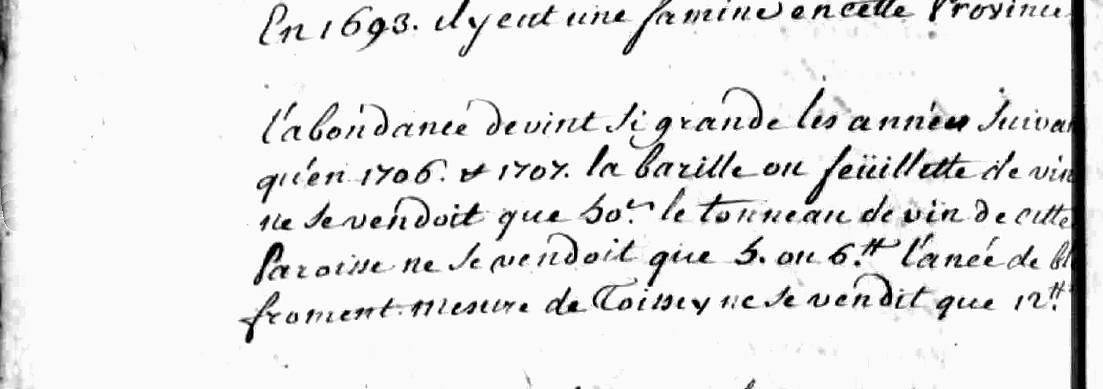 En 1693. il y eut une famine en cette Province
l'abondance devint si grande les années suivan
qu'en 1706. & 1707. la barille ou feüillette de vin
ne se vendoit que 50.s le tonneau de vin de cette
Paroisse ne se vendoit que 5. ou 6.tt l'anée de bl
froment mesure de Toissey ne se vendit que 12.tt